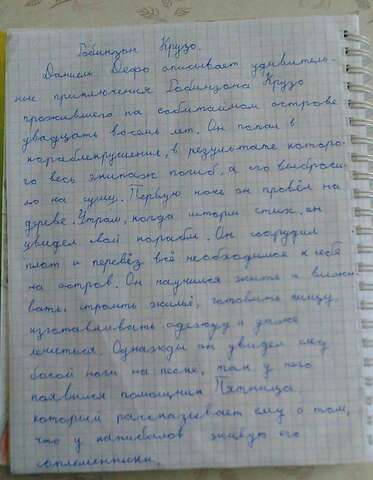 Робинзон Крузо.
Даниель Дефо описывает удивитель-
ные приключения Робинзона Крузо
прожившего на обитаемом острове
двадцать восемь лет. Он попал в
кораблекрушения, в результате которо-
го весь экипаж погиб, а его выброси-
ло на сушу. Первую ночь он провёл на
дереве. Утром, когда шторм стих, он
увидел свой корабль. Он соорудил
плот и перевёз всё необходимое к себе
на остров. Он научился жить и
вать, строить жильё, готовить пищу,
изготавливать одежду и даже
лечиться. Однажды он увидел след
босой ноги на песке, так у него
появился помощник Пятница
который рассказывает ему о том,
что у канибалов живут его
соплеменники.